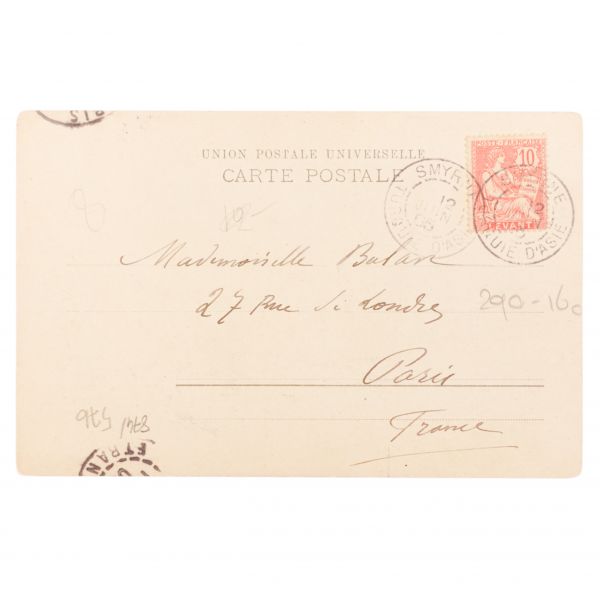 RIS
UNION POSTALE UNIVERSELLE
CARTE POSTALE
POSTE FRANÇAISE
10
LEVANT
SMYRNE
TURQUIE D'ASIE
12
TURQUIE D'ASIE
8
12-
Mademoiselle Balan
27 Rue de Londres
290-160
Paris
France
ETRAN